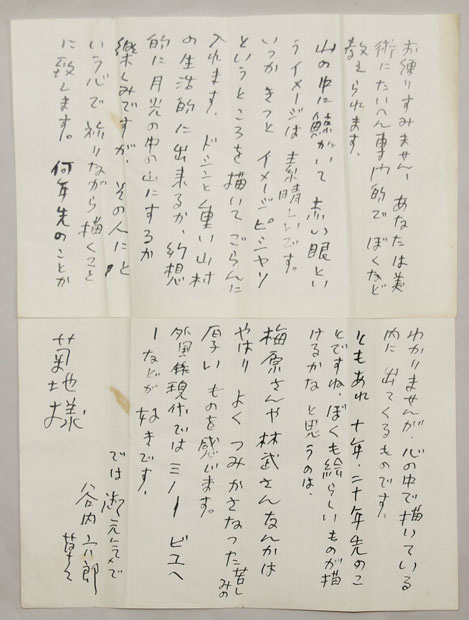 すみません、あなたは美
術にたいへん専門的でぼくなど
教えられます。
山の中に鯨がいて 赤い眼とい
うイメージは素晴しいです。
いつかきっと イメージピシャリ
というところを描いてごらんに
入れます、ドシンと重い山村
の生活的に出来るか、幻想
的に月光の中の山にするか
楽しみですが、その人にと
いう心で祈りながら描くこと
に致します。何年先のことか
わかりませんが、心の中で描いている
内に出てくるものです。
ともあれ 十年、二十年先のこ
とですね、ぼくも絵らしいものが描
けるかなと思うのは、
梅原さんや林武さんなんかは
やはり よくつみかさなった苦しみの
厚いものを感います。
現代ではミノー ビユヘ
ーなどが 好きです。
では御元気で
谷内六郎 草々
菊地様